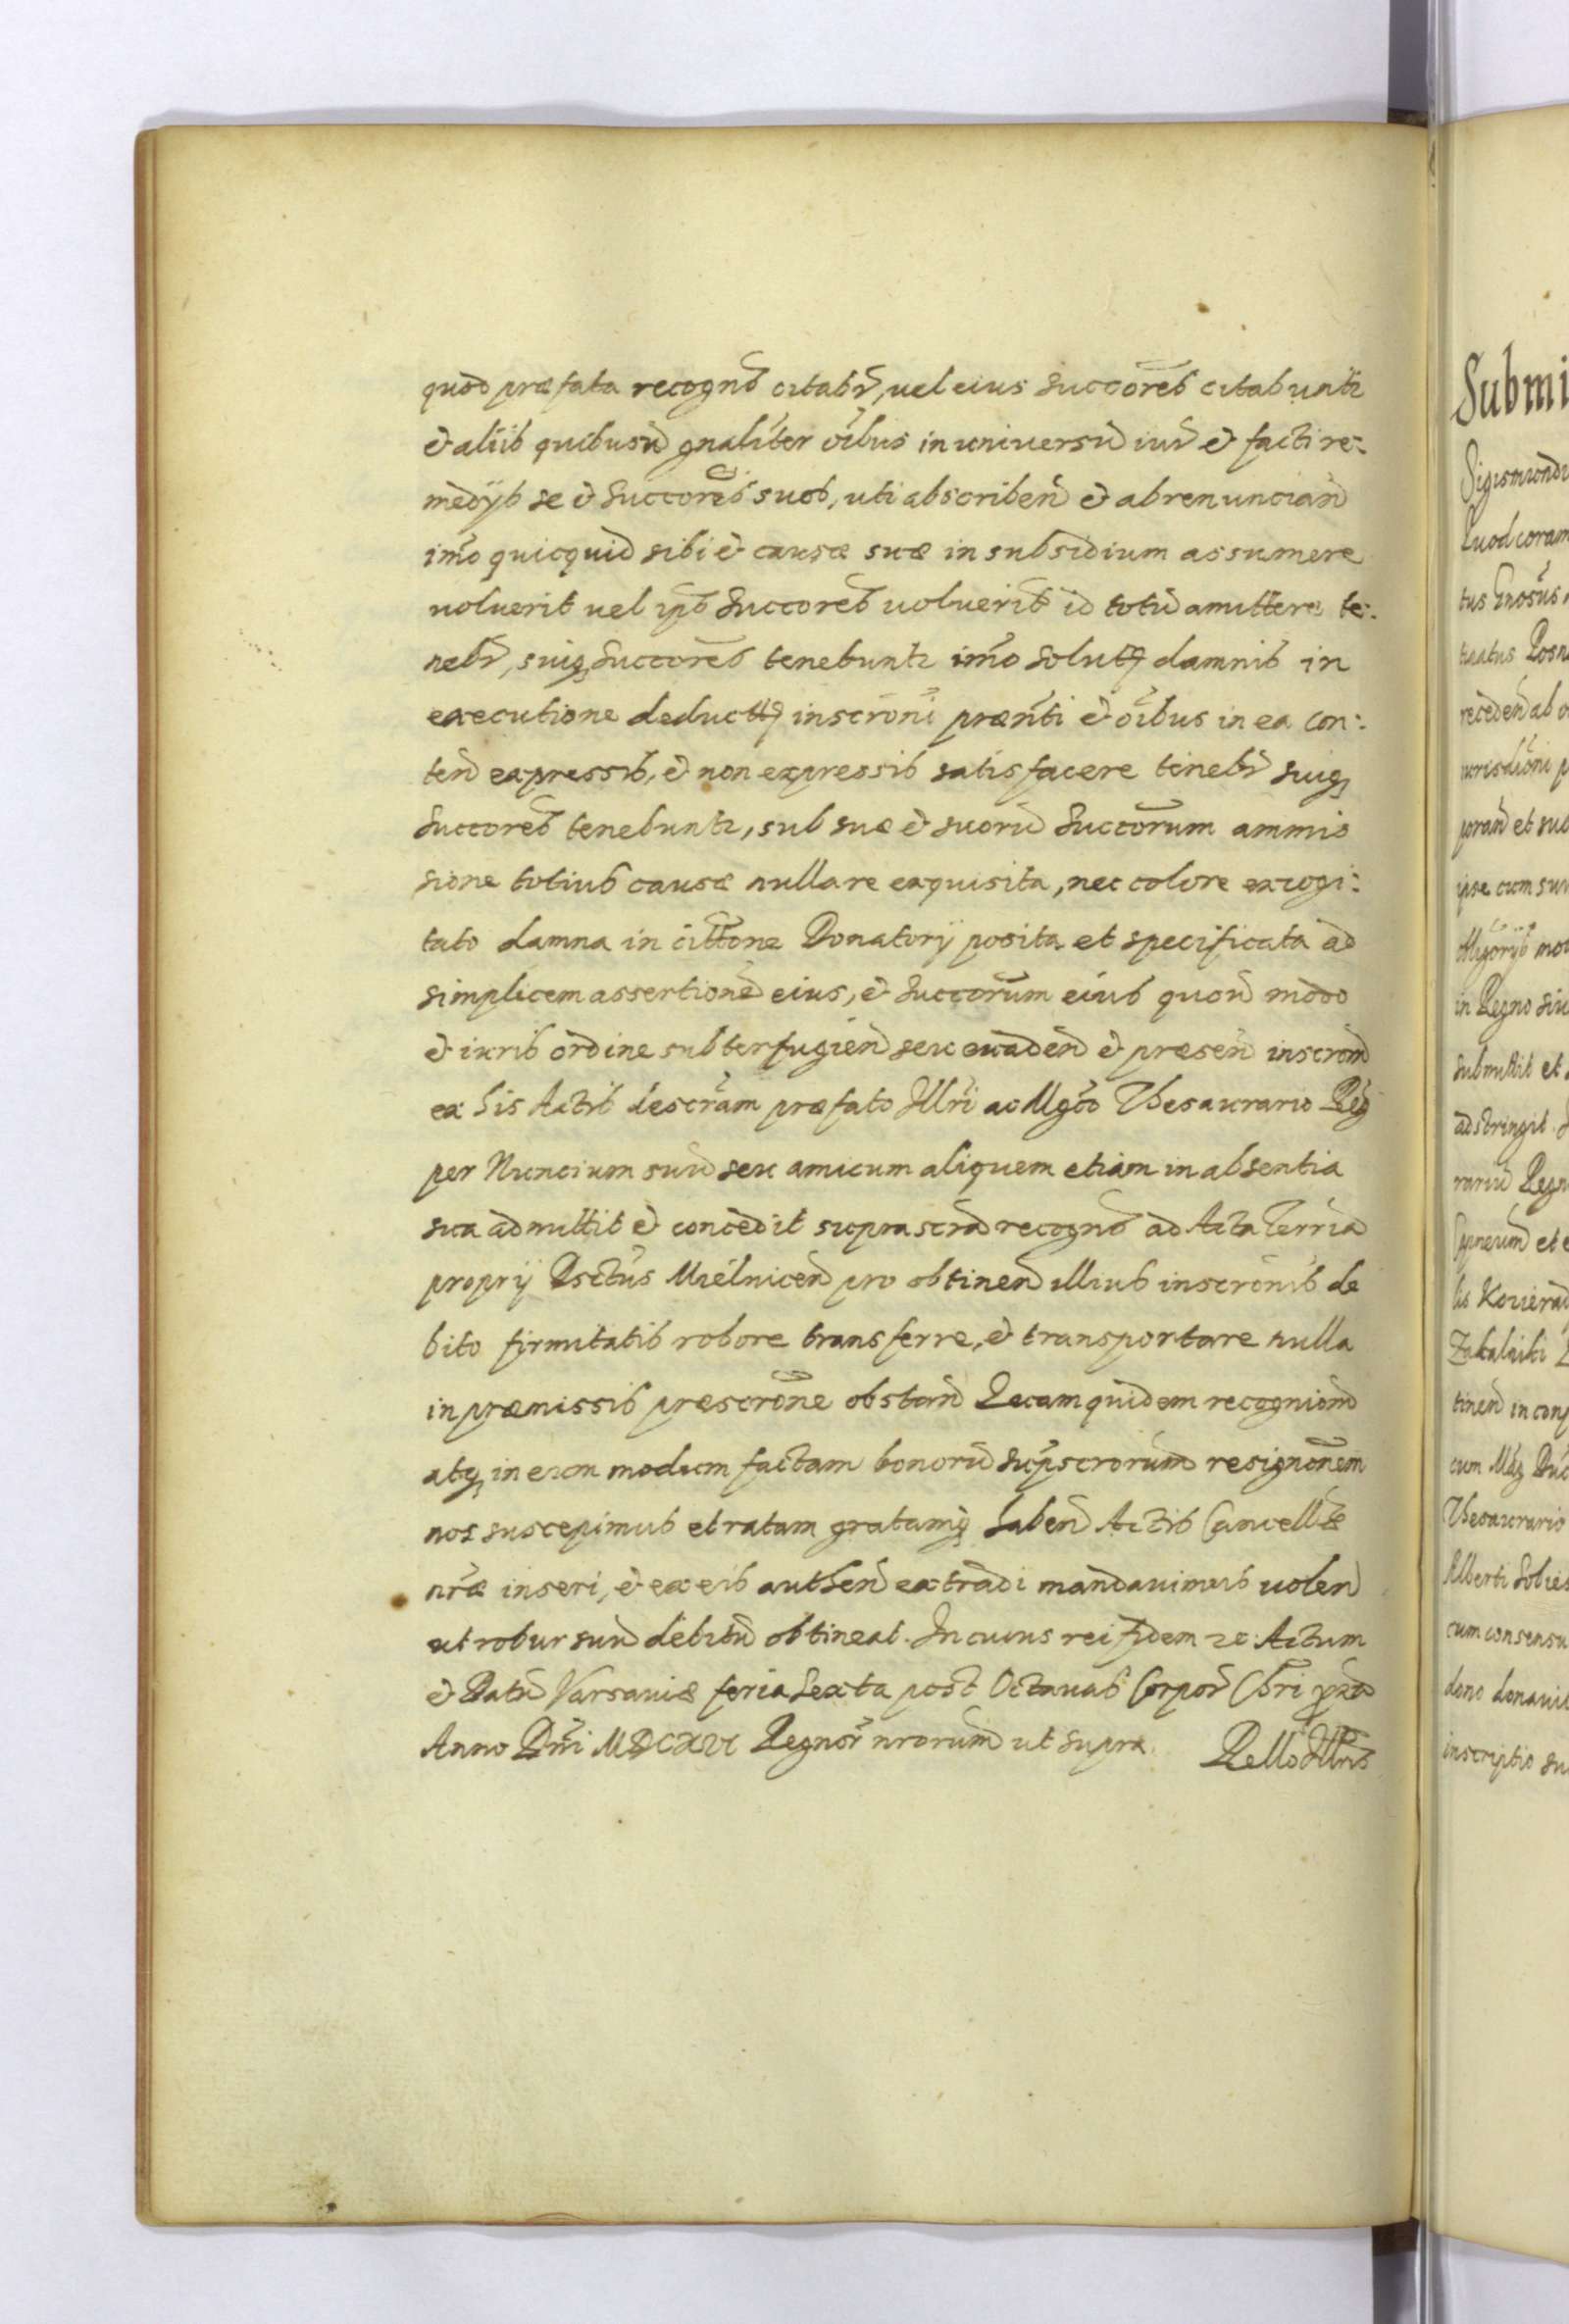 quod præfata recogns citabr, uel eius Succores citabuntr
& aliis quibusu gnaliter oibus in universu iur & facti re:
medijs se & Succores suos, uti abscriben & abrenuncian
imo quicquid sibi & causæ suæ in subsidium assumere
uoluerit uel ips Succores uoluerit id totu amittere te:
nebr, suiq Succores tenebuntr imo Solutq damnis in
executione deductq inscroni prænti & oibus in ea con:
ten expressis, & non expressis satisfacere tenebr suiq
Succores tenebuntr, sub suæ & suoru Succorum ammis
sione totius causæ nulla re exquisita, nec colore excogi:
tato damna in cittone Donatorij posita et specificata ad
simplicem assertione eius, & Succorum eius quou modo
& iuris ordine subterfugien seu euaden & præsen inscrom
ex his Actis descram præfato Illri ac Mgco Thesaurario Reg
per Nuncium suu seu amicum aliquem etiam in absentia
sua admittit & concedit suprascra recogns ad Acta Terria
proprij Dsctus Mielnicen pro obtinen illius inscronis de
bito firmitatis robore transferre, & transportare nulla
in præmissis præscrone obstan Quam quidem recogniom
atq in eum modum factam bonoru supscrorum resignonem
nos suscepimus et ratam gratamq haben Actis Cancellæ
nræ inseri, & ex eis authen extradi mandauimus uolen
ut robur suu debitu obtineat. In cuius rei fidem rc: Actum
& Datu Varsauiæ feria Sexta post Octauas Corpor Chri pxa
Anno Dni MDCXVI Regnor nrorum ut supra. Rello Illris
Submi
Sigismundu
Quod coram
tus Gnosus
tuatus Posn
receden ab o
iurisdioni p
poran et suc
ipse cum suu
obligorijs mo
in Regno siu
submittit et
adstringit.
rariu Regn
et e
lis
Zakalniki
tinen in con
cum Mag Duc
Thesaurario
Alberti Sobies
cum consensu
dono donauit
inscriptio su